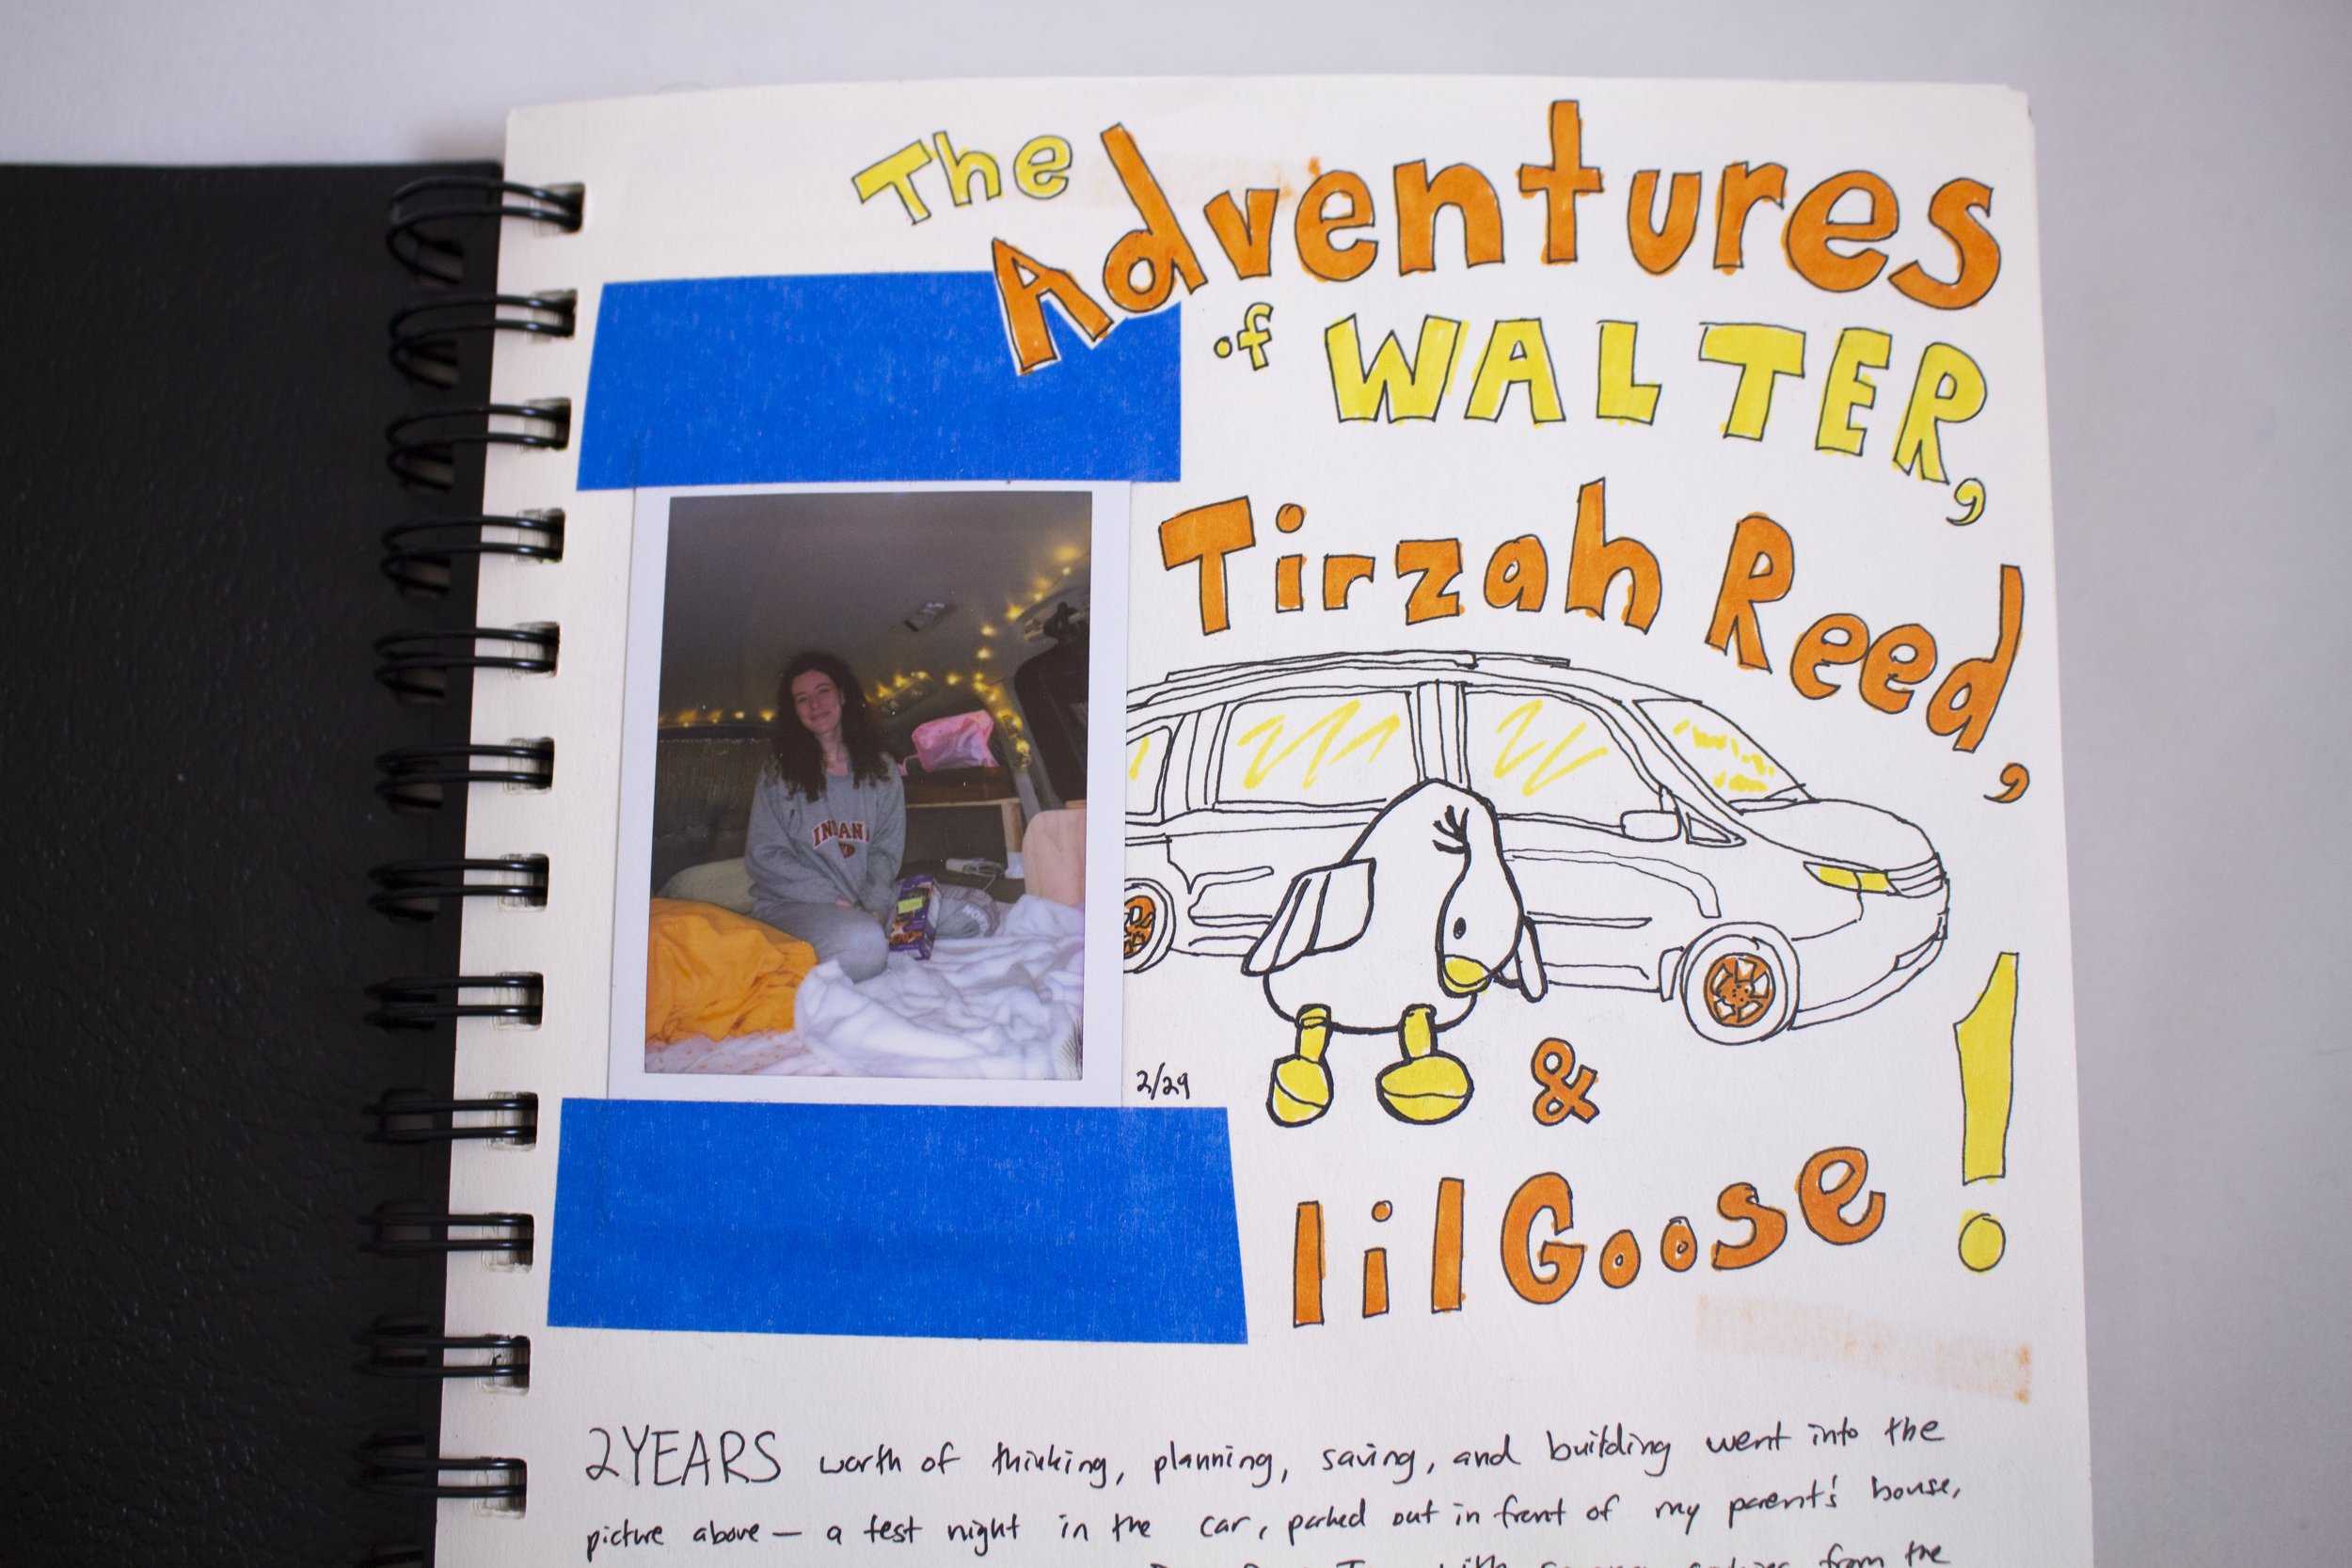 The Adventures
of WALTER,
Tirzah Reed,
INDIANA
2/29
&
lil Goose!
2 YEARS worth of thinking, planning, saving, and building went into the
picture above — a test night in the car, parked out in front of my parent's house,
from the